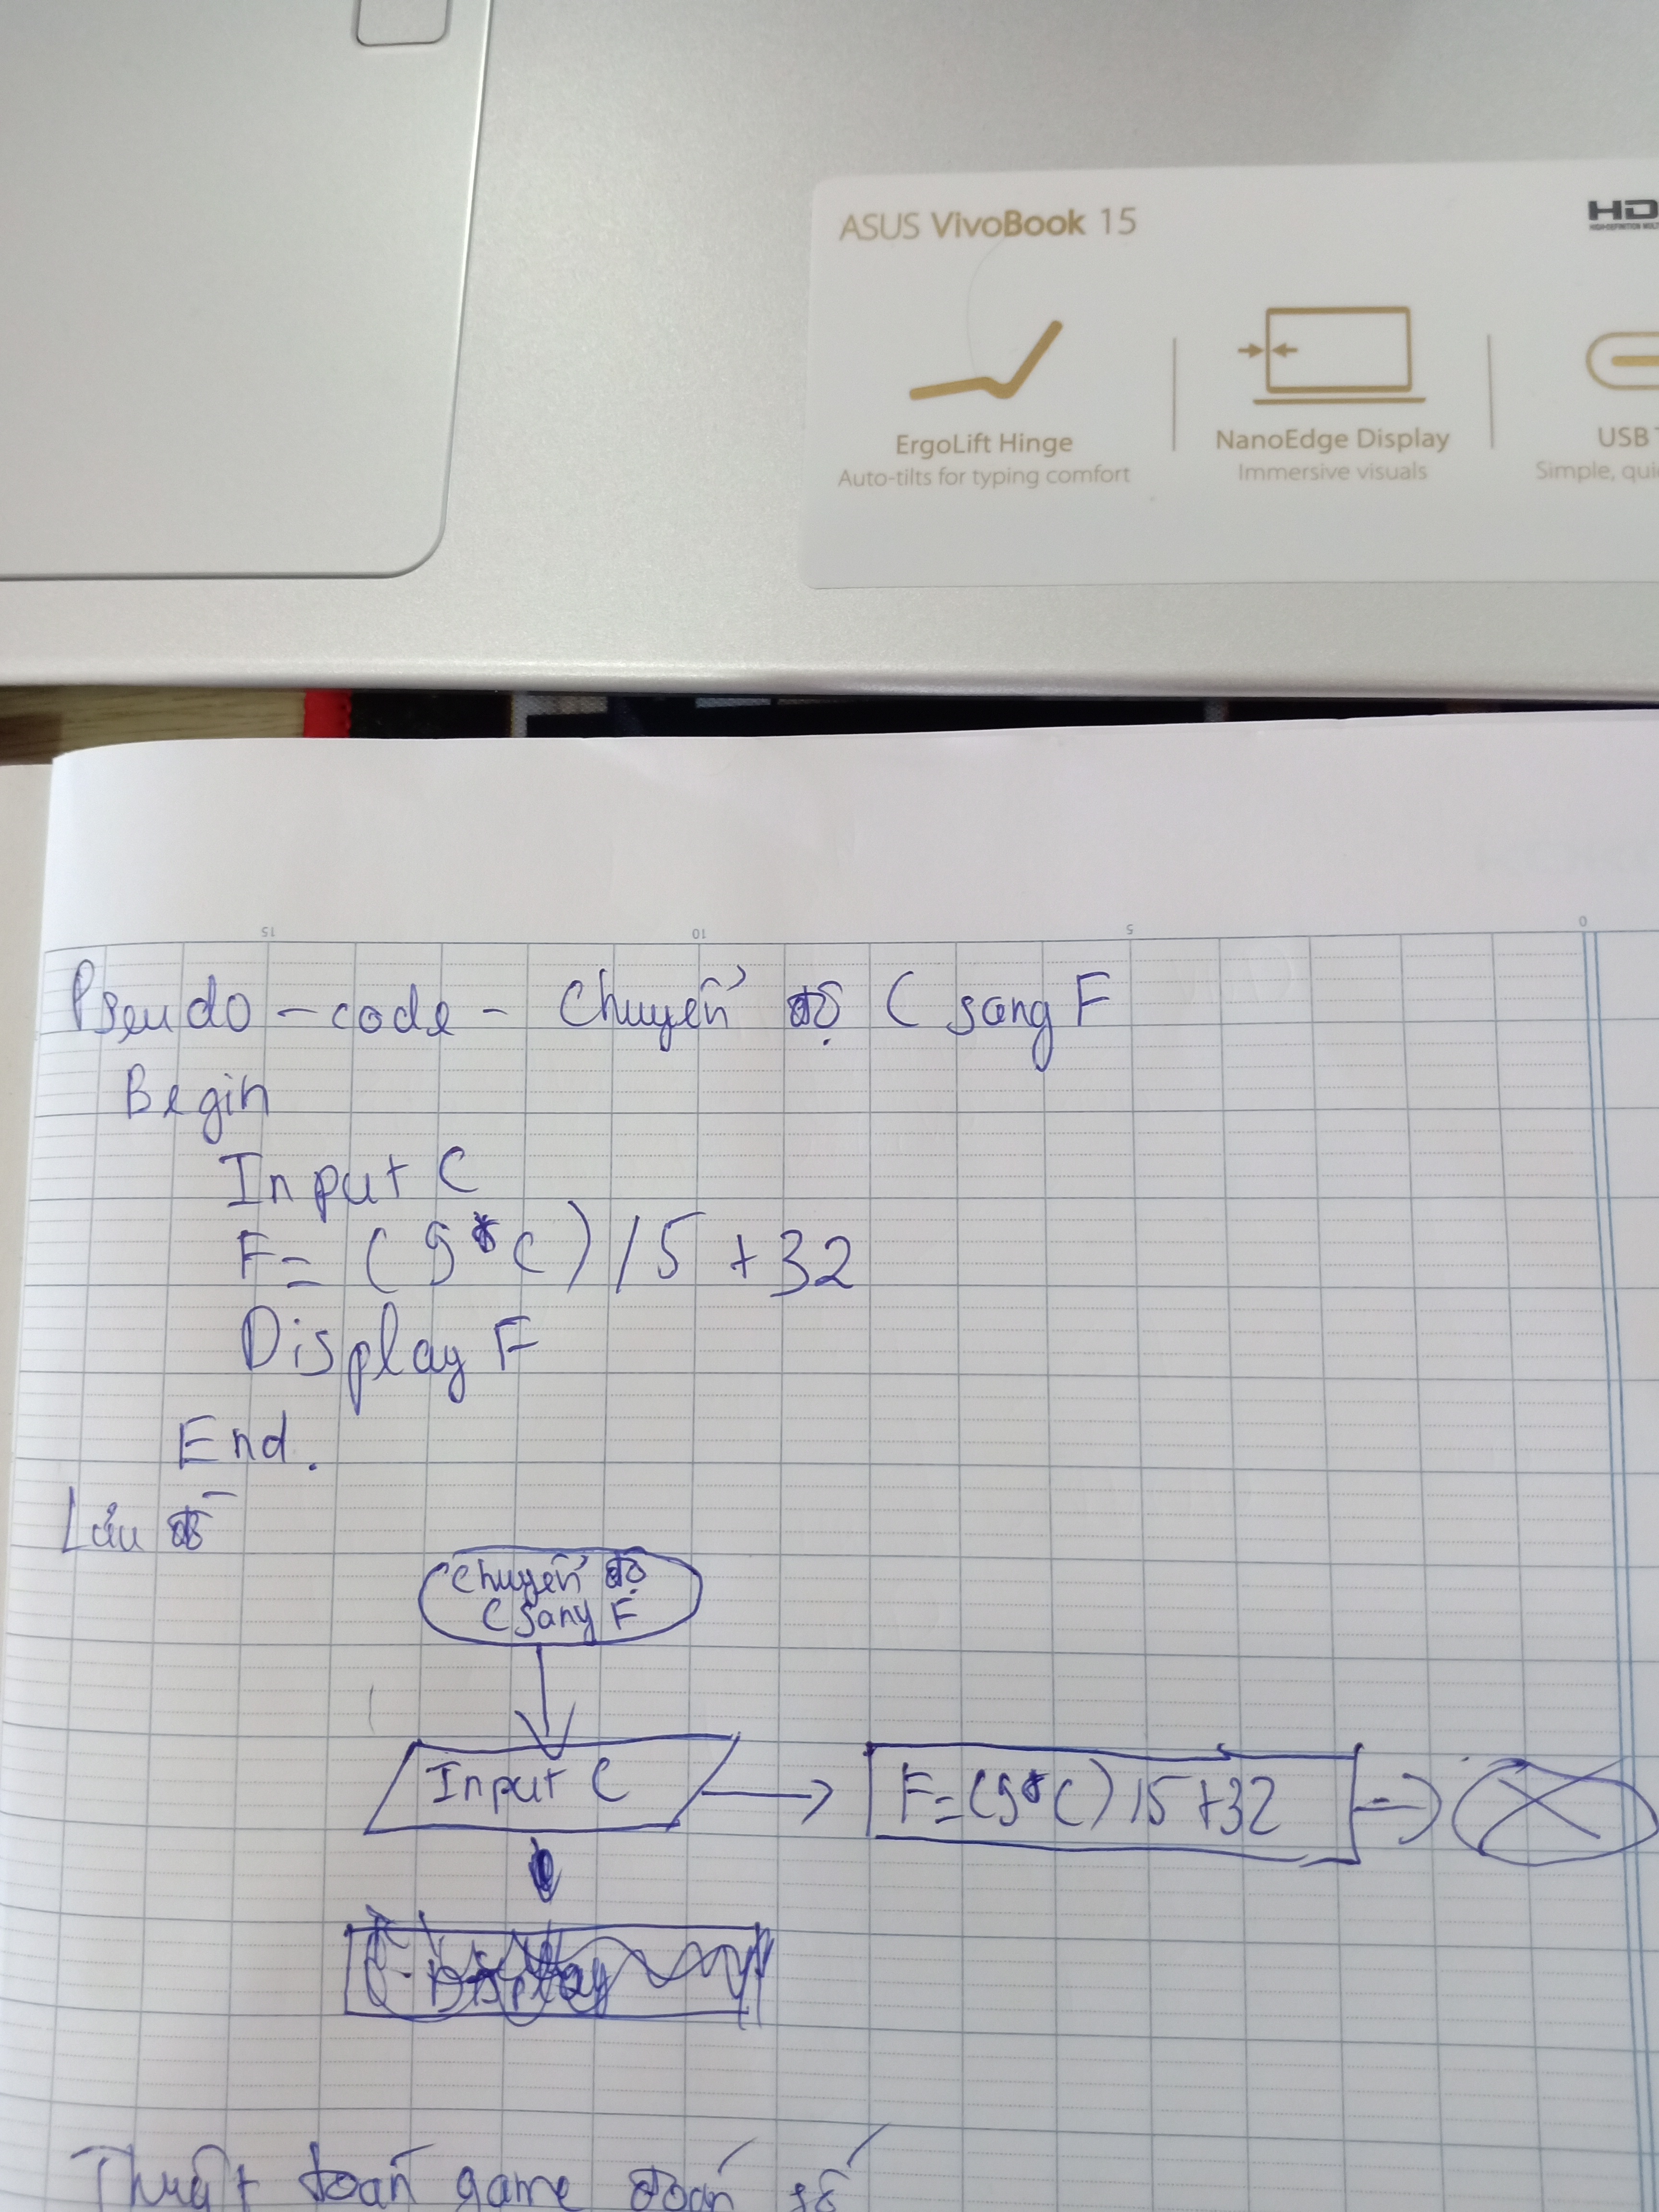 ASUS VivoBook 15
HD
ErgoLift Hinge
Auto-tilts for typing comfort
NanoEdge Display
Immersive visuals
USB
Simple, qui
15
10
5
0
Pseudo - code - Chuyển độ C sang F
Begin
Input C
F = (9*C)/5 + 32
Display F
End.
Lưu đồ
Chuyển độ
C sang F
Input C
F=(9*C)/5+32
Display
Thuật toán game đoán số